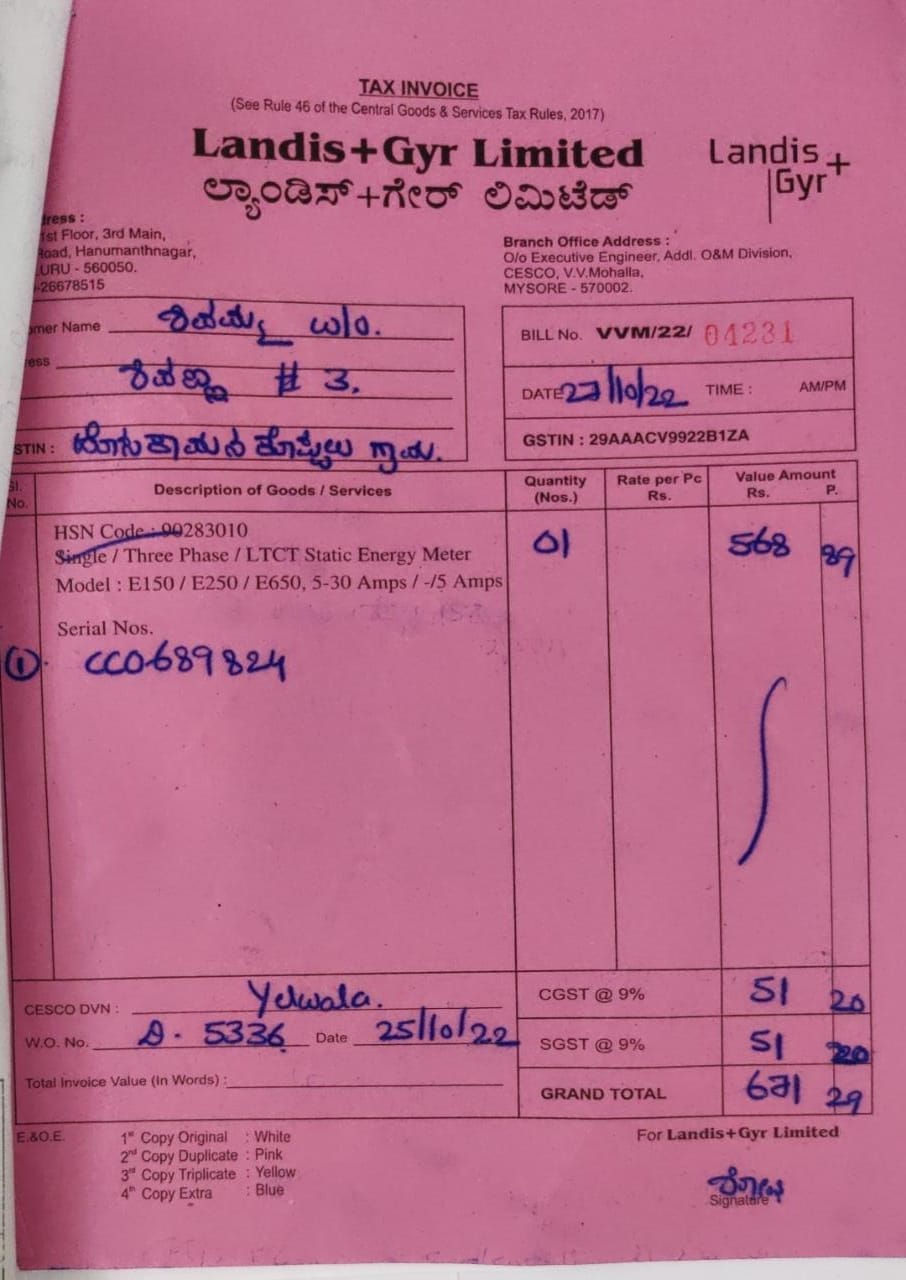 TAX INVOICE
(See Rule 46 of the Central Goods & Services Tax Rules, 2017)
Landis+Gyr Limited
Landis+Gyr
ಲ್ಯಾಂಡಿಸ್+ಗೇರ್ ಲಿಮಿಟೆಡ್
dress :
1st Floor, 3rd Main,
Road, Hanumanthnagar,
URU - 560050.
-26678515
Branch Office Address :
O/o Executive Engineer, Addl. O&M Division,
CESCO, V.V.Mohalla,
MYSORE - 570002.
omer Name ಶಿವಮ್ಮ w/o.
ress ಶಿವಣ್ಣ # 3,
STIN : ಗ್ರಾಮ.
BILL No. VVM/22/ 04231
DATE 27/10/22 TIME : AM/PM
GSTIN : 29AAACV9922B1ZA
Sl. No. Description of Goods / Services Quantity (Nos.) Rate per Pc Rs. Value Amount Rs. P.
HSN Code : 90283010
Single / Three Phase / LTCT Static Energy Meter 01 568 89
Model : E150 / E250 / E650, 5-30 Amps / -/5 Amps
Serial Nos.
1 CC0689824
CESCO DVN : Yelwala.
W.O. No. 5336 Date 25/10/22
Total Invoice Value (In Words) :
CGST @ 9% 51 20
SGST @ 9% 51 20
GRAND TOTAL 671 29
E.&O.E.
1st Copy Original : White
2nd Copy Duplicate : Pink
3rd Copy Triplicate : Yellow
4th Copy Extra : Blue
For Landis+Gyr Limited
Signature